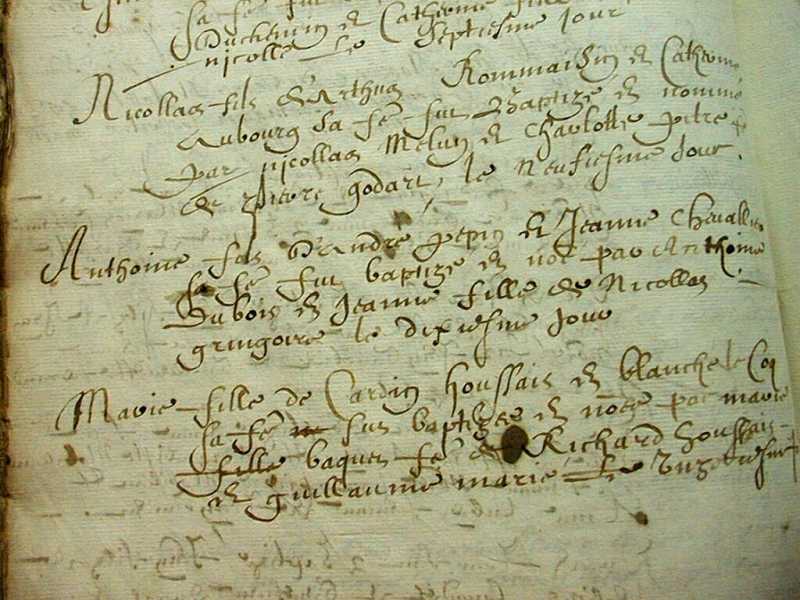 sa fe fut
Duchemin et Catherine fille
nicolle le septiesme jour
Nicollas fils d'Arthus Rommaisin et Catherine
aubourg sa fe fut Baptize et nommé
par nicollas Melun et Charlotte
de pierre godart, le neufiesme Jour.
Anthoine fils D'André pepin et Jeanne Chevallier
sa fe fut baptize et noe par Anthoine
Dubois et Jeanne fille de Nicollas
gringoire le dixiesme jour
Marie fille de Cardin houssais et blanche le Coq
sa fe fut baptizee et noee par marie
fille baquet fe de Richard houssais
et guillaume marie le unziesme